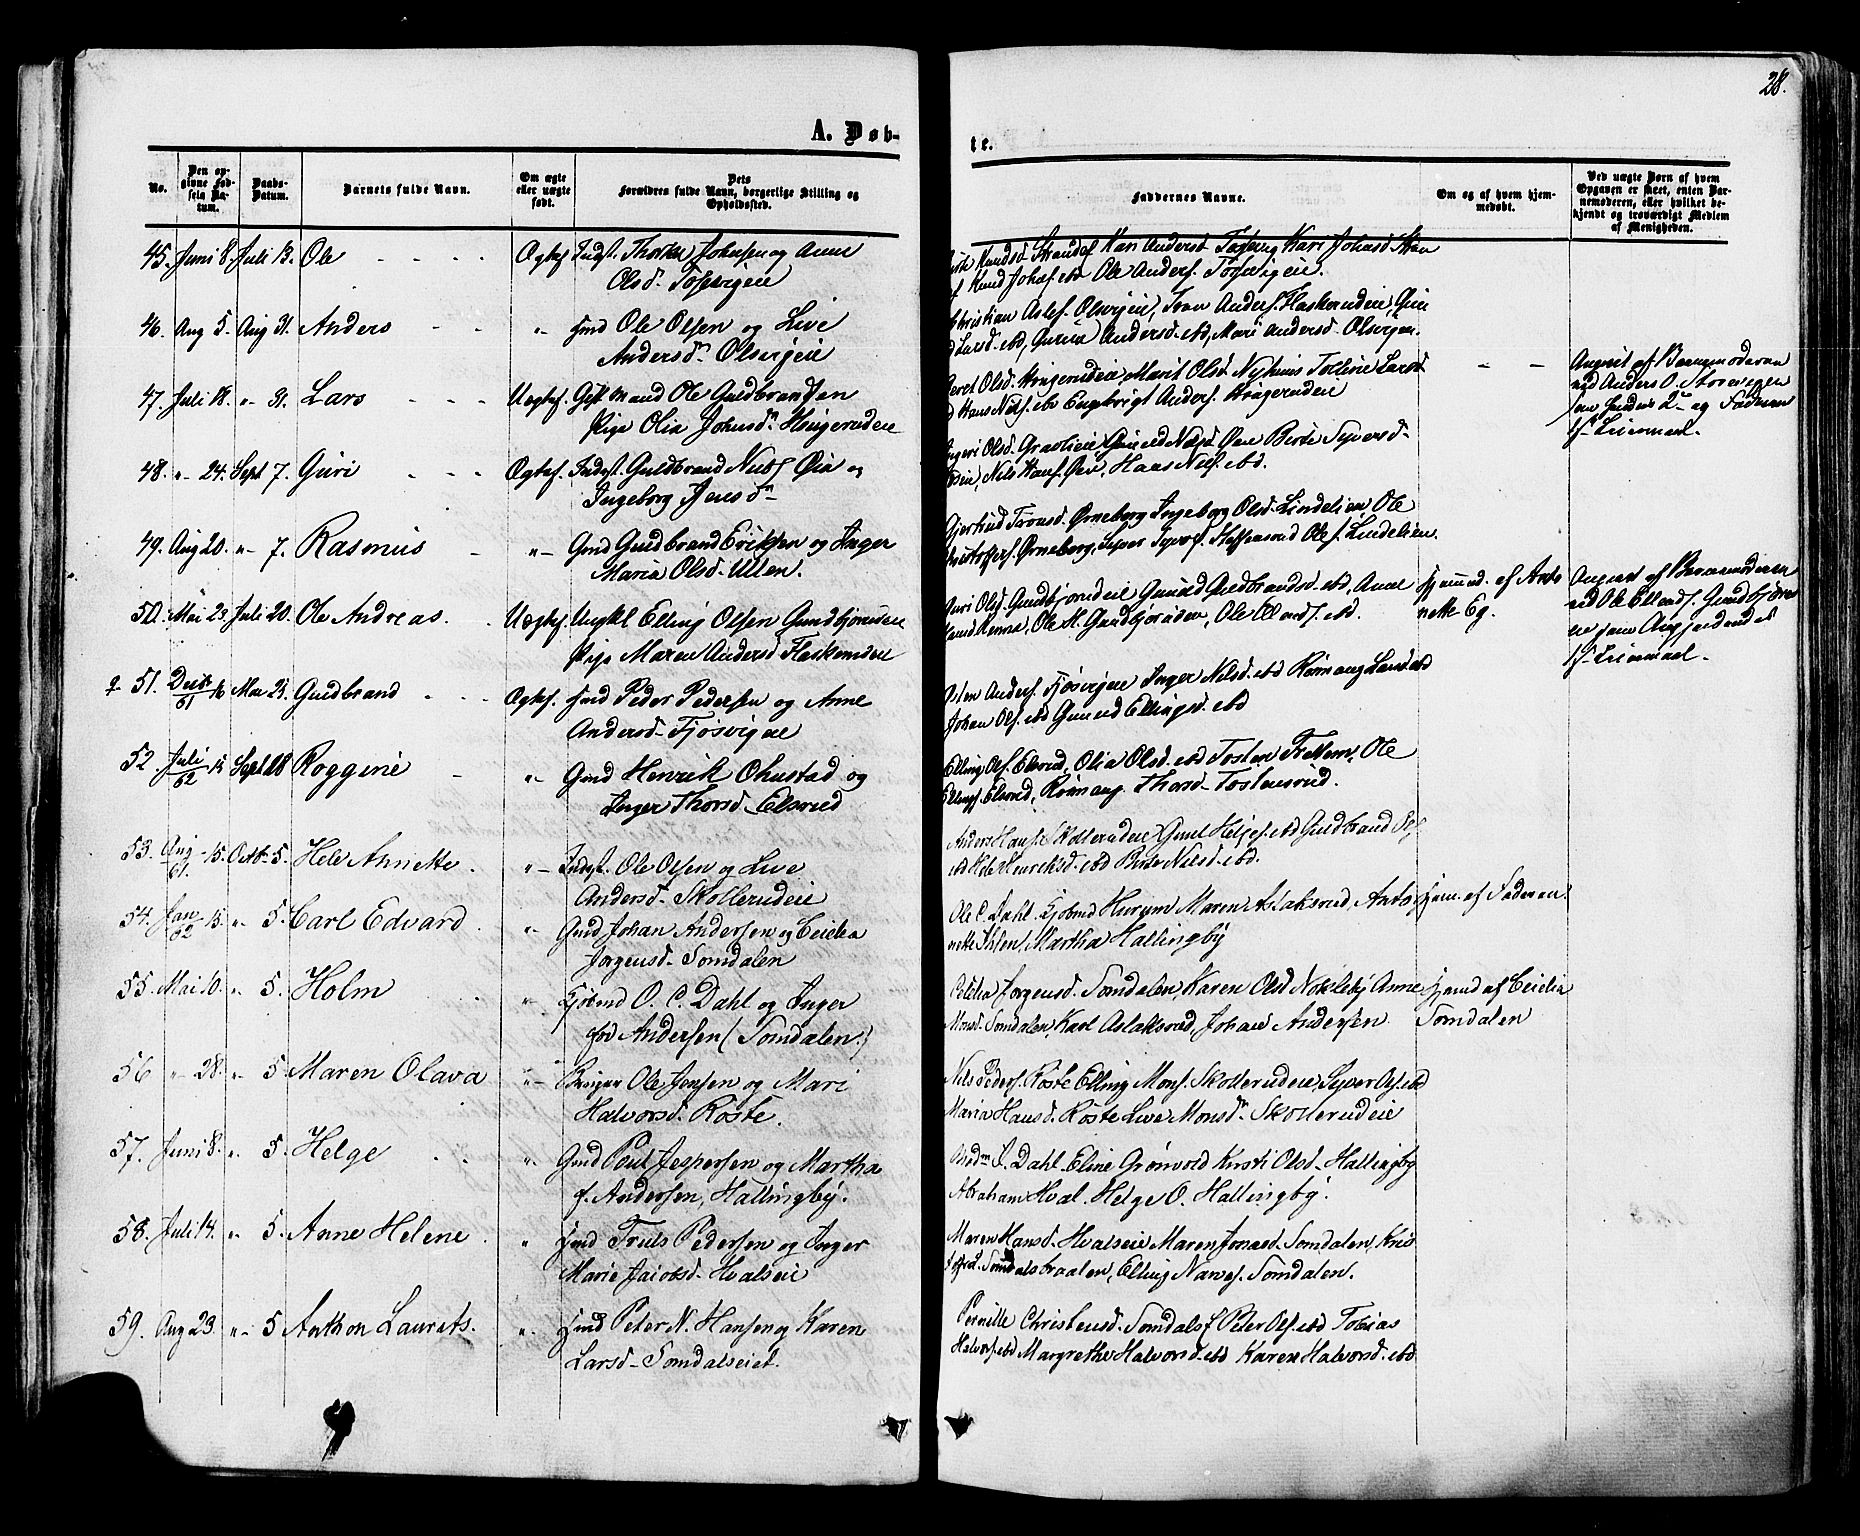 28.
A. Døb-
te.
No.
Den op-
givne Fød-
sels Da-
tum.
Daabs-
Datum.
Barnets fulde Navn.
Om ægte
eller uægte
født.
Dets
Forældres fulde Navn, borgerlige Stilling og
Opholdssted.
Faddernes Navne.
Om og af hvem hjem-
medøbt.
Ved uægte Børn af hvem
Opgaven er skeet, enten Bar-
nemoderen, eller hvilket be-
kjendt og troværdigt Medlem
af Menigheden.
45. Juni 8. Juli 13. Ole Ogtef. Indst. Johnsen og Anne
Olsd.
Knudsd. Kari Andersd. Kari Johnsd.
Knud Johnsf. ibd Ole Andersf.
46. Aug 5. Aug 31. Anders " Ole Olsen og Live
Andersd. Olsvigeie
Christian Olsvigeie, Iver Andersf. Flaskerudeie,
Larsd. ibd, Andersd. ibd, Mari Andersd. Olsvigen.
47. Juli 18. " 31. Lars Uegtef. Gift Mand Ole Guldbrandsen
Pige Olia Johnsd. Hringerudeie
Olsd. Hringerudeie Marit Olsd. Larsd
Hans Nilsf. ibd Engebrigt Andersf. Hringerudeie
Angivet af Barnemoderen
ved Anders O. Storveien
2den og Faderen
Leiermaal.
48. " 24. Sept 7. Guri Ogtef. Indst. Guldbrand Nilsf. Øie og
Ingeborg Jensd.
Olsd. Nilsd. Øie Berte Syversd.
Nils Hansf. Øie, Hans Nilsf. ibd.
49. Aug 20. " 7. Rasmus " Gmd Guldbrand Eriksen og Inger
Maria Olsd. Ullen.
Gjertrud Tronsd. Ørneborg Ingeborg Olsd. Lindelien, Ole
Christoffersf. Ørneborg, Syver Syversf. Steffensrud Ole Lindelien.
50. Mai 23. Juli 20. Ole Andreas. Uegtef. Ungkl Elling Olsen Gundbjørudeie
Pige Maren Andersd Flaskerudeie
Guri Olsd. Gundbjørudeie Gunild Guldbrandsd. ibd, Anne
Ole H. Gundbjøruden, Ole Ellendsf. ibd.
hjemmed. af Anto
nette Eg.
Angivet af Barnemoderen
ved Ole Ellendsf. Gundbjørud
eie som Angjældendes
1ste Leiermaal.
51. Decbr 16/61 Mai 21. Guldbrand Ogtef. Peder Pedersen og Anne
Andersd. Fjøsvigeie
Osten Andersf. Fjøsvigeie Inger Nilsd. ibd Larsd ibd
Johan Olsf. ibd Gunild Ellingsd. ibd
52. Juli 15/62 Sept 28 Roggine " Gmd Henrik Ohnstad og
Inger Thorsd. Elsrud
Elling Olsf. Elsrud, Olia Olsd. ibd Tosten Trettern, Ole
Ellingsf. Elsrud, Thorsd. Tostensrud.
53. Aug 15/61. Octb. 5. Hele Annette " Indst. Ole Olsen og Live
Andersd. Skollerudeie
Anders Hansf. Skollerudeie Helgesf. ibd Guldbrand
ibd Hele Henriksd. ibd Berte Nilsd. ibd.
54. Jan 15/62 " 5. Carl Edvard. " Gmd Johan Andersen og Ceielia
Jørgensd. Somdalen
Ole C. Dahl. Kjøbmd Hurum Maren Aslaksrud, Anto-
nette Ihlen, Martha Hallingby
hjem. af Faderen.
55. Mai 10. " 5. Holm " Kjøbmd O. C. Dahl og Inger
fød Andersen (Somdalen.)
Celelia Jørgensd. Somdalen, Karen Olsd Nokleby Anne
Monsd. Somdalen, Karl Aslaksrud, Johan Andersen
hjemd af Ceielia
Somdalen
56 " 28. " 5 Maren Olava " Bruger Ole Jensen og Mari
Halvorsd. Roste.
Nils Pedersf. Roste Elling Monsf. Skollerudeie, Syver Olsf. ibd
Maria Hansd. Roste Live Monsd. Skollerudeie
57. Juni 8. " 5. Helge " Gmd Poul Jespersen og Martha
f. Andersen, Hallingby.
J. Dahl. Eline Grønvold Kirsti Olsd. Hallingby
Abraham Hval. Helge O. Hallingby.
58. Juli 14. " 5. Anne Helene. " Truls Pedersen og Inger
Marie Jacobsd. Hvalseie
Maren Hansd. Hvalseie Maren Jonasd. Somdalen, Kris
Somdalsbraaten, Elling Somdalen.
59. Aug 23. " 5 Anthon Laurets. " Peter N. Hansen og Karen
Larsd. Somdalseiet.
Pernille Christensd. Somdals Peter Olsf. ibd Tobias
Halvorsf. ibd Margrethe Halvorsd. ibd Karen Halvorsd. ibd